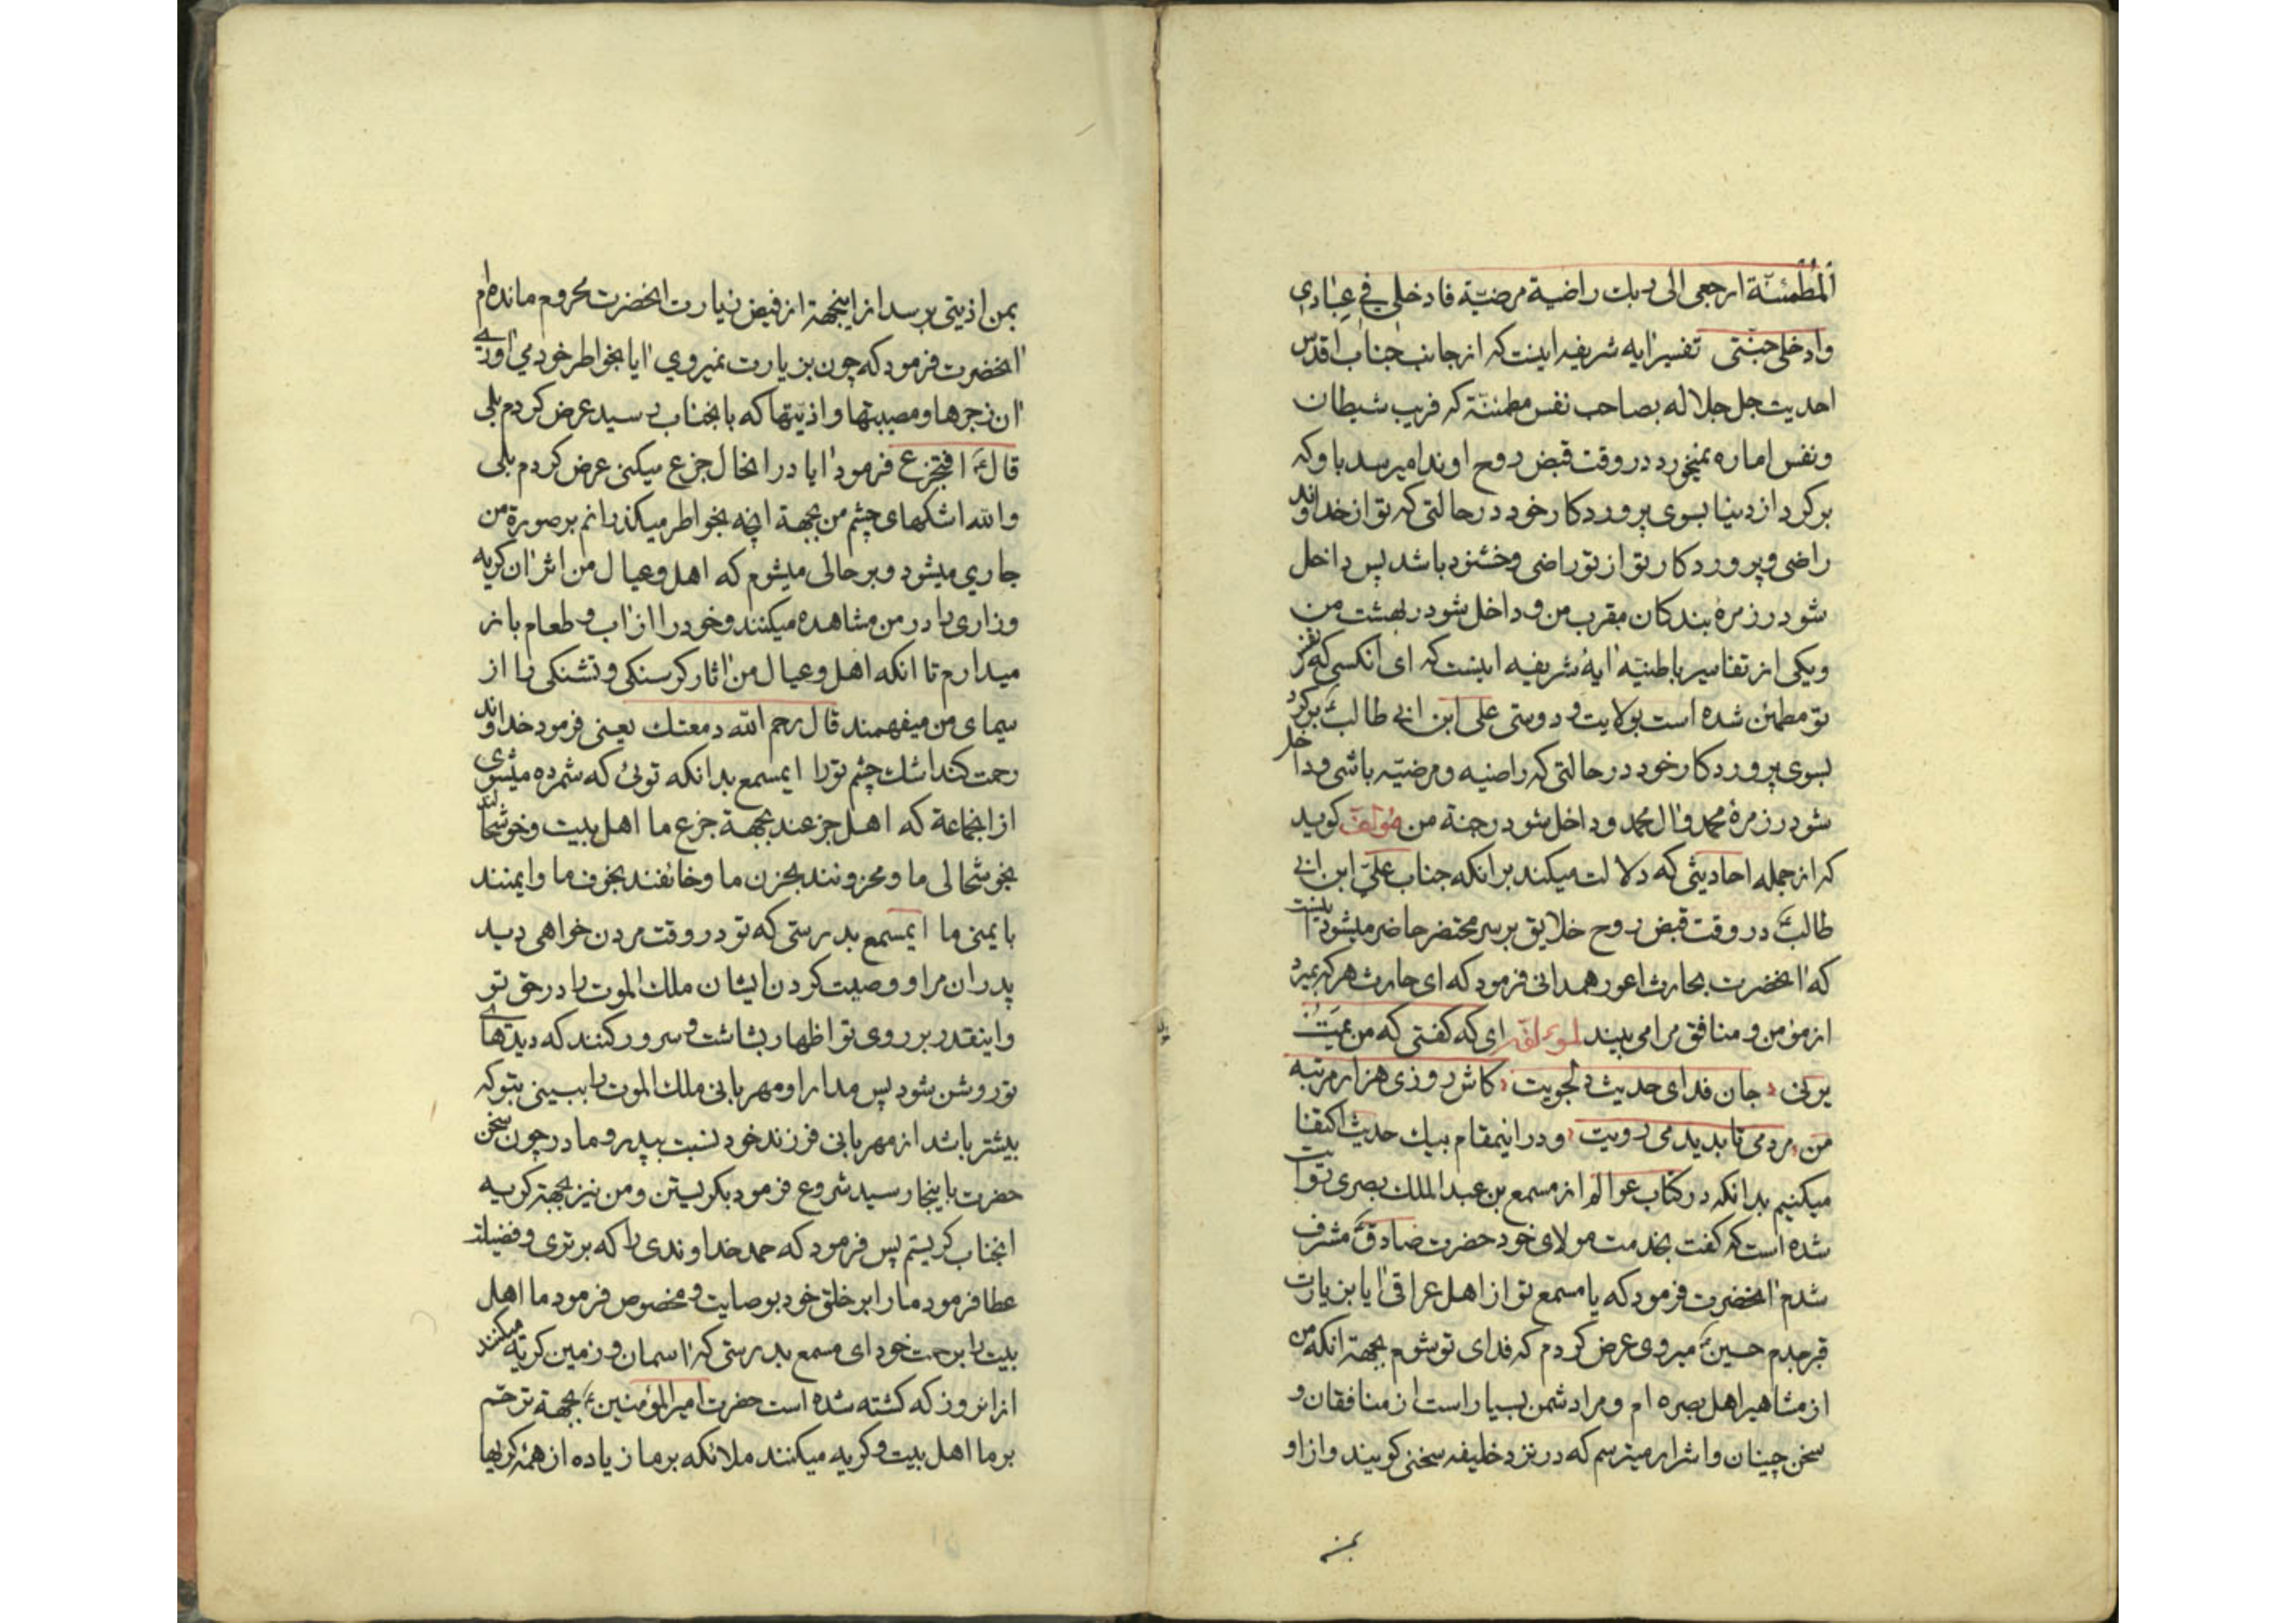 المطمئنّة ارجعی الی ربك راضیة مرضیّة فادخلی فی عبادی
وادخلی جنّتی تفسیر ایه شریفه اینست که از جانب جناب اقدس
احدیت جل جلاله بصاحب نفس مطمئنّة که فریب شیطان
ونفس اماره نمیخورد در وقت قبض روح او ندا میرسد باو که
برکرد از دنیا بسوی پروردکار خود در حالتی که تو از خداوند
راضی و پروردکار تو از تو راضی وخشنود باشد پس داخل
شو در زمرهٔ بندکان مقرب من و داخل شو در بهشت من
ویکی از تفاسیر باطنیّه ایهٔ شریفه اینست که ای انکسی که نفس
تو مطمئن شده است بولایت و دوستی علی ابن ابی طالبؑ برکرد
بسوی پروردکار خود در حالتی که راضیه ومرضیّه باشی وداخل
شو در زمرهٔ محمد وال محمد وداخل شو در جنة من مؤلف کوید
که از جمله احادیثی که دلالت میکند بر انکه جناب علیّ ابن ابی
طالبؑ در وقت قبض روح خلایق بر سر محتضر حاضر میشود اینست
که انحضرت بحارث اعور همدانی فرمود که ای حارث هر که بمیرد
از مؤمن و منافق مرا می بیند لمؤلفه ای که کفتی که من یمت
یرنی جان فدای حدیث دلجویت کاش روزی هزار مرتبه
من مردمی تا بدیدمی رویت ودر اینمقام بیك حدیث اکتفا
میکنیم بدانکه در کتاب عوالم از مسمع بن عبد الملك بصری روایت
شده است که کفت بخدمت مولای خود حضرت صادقؑ مشرف
شدم انحضرت فرمود که یا مسمع تو از اهل عراقی ایا بزیارت
قبر جدم حسینؑ میروی عرض کردم که فدای تو شوم بجهة انکه من
از مشاهیر اهل بصره ام ومرا دشمن بسیار است از منافقان و
سخن چینان واشرار میترسم که در نزد خلیفه سخنی کویند واز او
بمن
بمن اذیتی برسد از اینجهة از فیض زیارت انحضرت محروم مانده ام
انحضرت فرمود که چون بزیارت نمیروی ایا بخواطر خود می اوری
ان زجرها ومصیبتها و اذیّتها که بانجناب رسید عرض کردم بلی
قالؑ افتجزع فرمود ایا در انحال جزع میکنی عرض کردم بلی
والله اشکهای چشم من بجهة انچه بخواطر میکذرانم بر صورة من
جاری میشود وبر حالی میشوم که اهل وعیال من اثر ان کریه
وزاری را در من مشاهده میکنند وخود را از اب و طعام باز
میدارم تا انکه اهل وعیال من اثار کرسنکی و تشنکی را از
سیمای من میفهمند قال رحم الله دمعتك یعنی فرمود خداوند
رحمت کند اشك چشم تو را ایمسمع بدانکه توئی که شمرده میشوی
از انجماعة که اهل جزعند بجهة جزع ما اهل بیت وخوشحالند
بخوشحالی ما ومحزونند بحزن ما وخائفند بخوف ما وایمنند
بایمنی ما ایمسمع بدرستی که تو در وقت مردن خواهی دید
پدران مرا و وصیت کردن ایشان ملك الموت را در حق تو
واینقدر بر روی تو اظهار بشاشت و سرور کنند که دیدهای
تو روشن شود پس مدارا ومهربانی ملك الموت را ببینی بتو که
بیشتر باشد از مهربانی فرزند خود نسبت بپدر وما در چون سخن
حضرت باینجا رسید شروع فرمود بکریستن ومن نیز بجهة کریه
انجناب کریستم پس فرمود که حمد خداوندی را که برتری و فضیلت
عطا فرمود ما را بر خلق خود بوصایت و مخصوص فرمود ما اهل
بیت را برحمت خود ای مسمع بدرستی که اسمان و زمین کریه میکنند
از انروز که کشته شده است حضرت امیر المؤمنینؑ بجهة ترحّم
بر ما اهل بیت و کریه میکنند ملائکه بر ما زیاده از همهٔ کریها